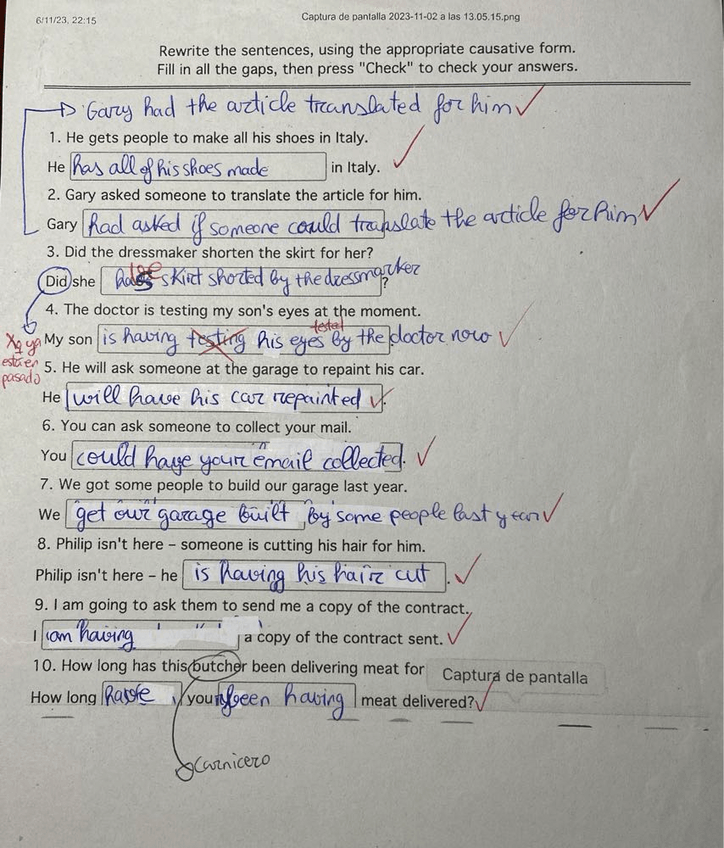 6/11/23, 22:15 Captura de pantalla 2023-11-02 a las 13.05.15.png
Rewrite the sentences, using the appropriate causative form.
Fill in all the gaps, then press "Check" to check your answers.
Gary had the article translated for him
1. He gets people to make all his shoes in Italy.
He has all of his shoes made in Italy.
2. Gary asked someone to translate the article for him.
Gary had asked if someone could translate the article for him
3. Did the dressmaker shorten the skirt for her?
Did she skirt shorted by the dressmarker ?
4. The doctor is testing my son's eyes at the moment.
tested
My son is having testing his eyes by the doctor now
Xq ya
está en
pasado
5. He will ask someone at the garage to repaint his car.
He will have his car repainted.
6. You can ask someone to collect your mail.
You could have your email collected.
7. We got some people to build our garage last year.
We get our garage built by some people last year
8. Philip isn't here – someone is cutting his hair for him.
Philip isn't here – he is having his hair cut.
9. I am going to ask them to send me a copy of the contract.
I am having a copy of the contract sent.
10. How long has this butcher been delivering meat for Captura de pantalla
How long have you been having meat delivered?
Carnicero